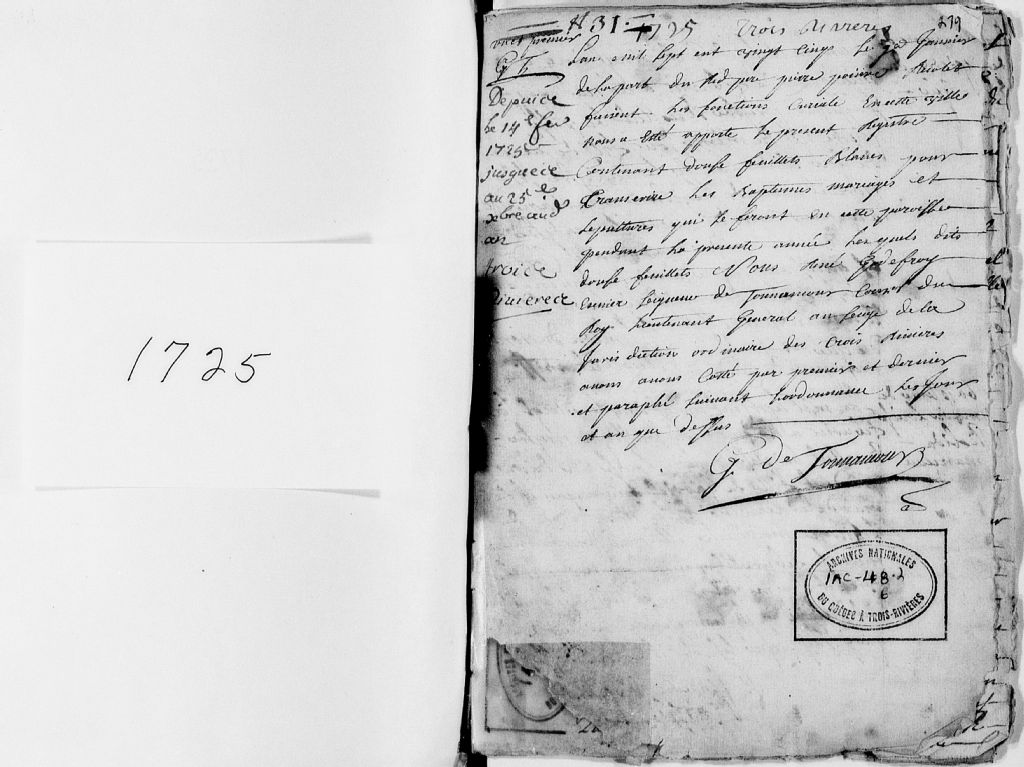 1725
N 31.
1725
Trois Rivieres
279
feuillet premier
G T
Depuice
le 14e fev
1725
jusquece
au 25e
xbre aud
an
troice
Rivierece
Lan mil sept cent vingt cinq le Janvier
de la part du Red pre
faisant les fonctions Curiale En cette ville
nous a Esté apporté le present Registre
Contenant douse feuillets blancs pour
Transcrire les Baptemes mariages et
Sepultures qui se feront en cette paroisse
pendant la presente année Lesquels dits
douse feuillets Nous René Godefroy
Escuier Seigneur de Tonnancour Conser du
Roy Lieutenant General au Siege de la
Jurisdiction ordinaire des trois Rivieres
avons Cotté par premier et dernier
et paraphé Suivant Lordonnance Les Jour
et an que dessus
G. De Tonnancour
ARCHIVES NATIONALES
1AC-48.2
6
DU QUÉBEC À TROIS-RIVIÈRES